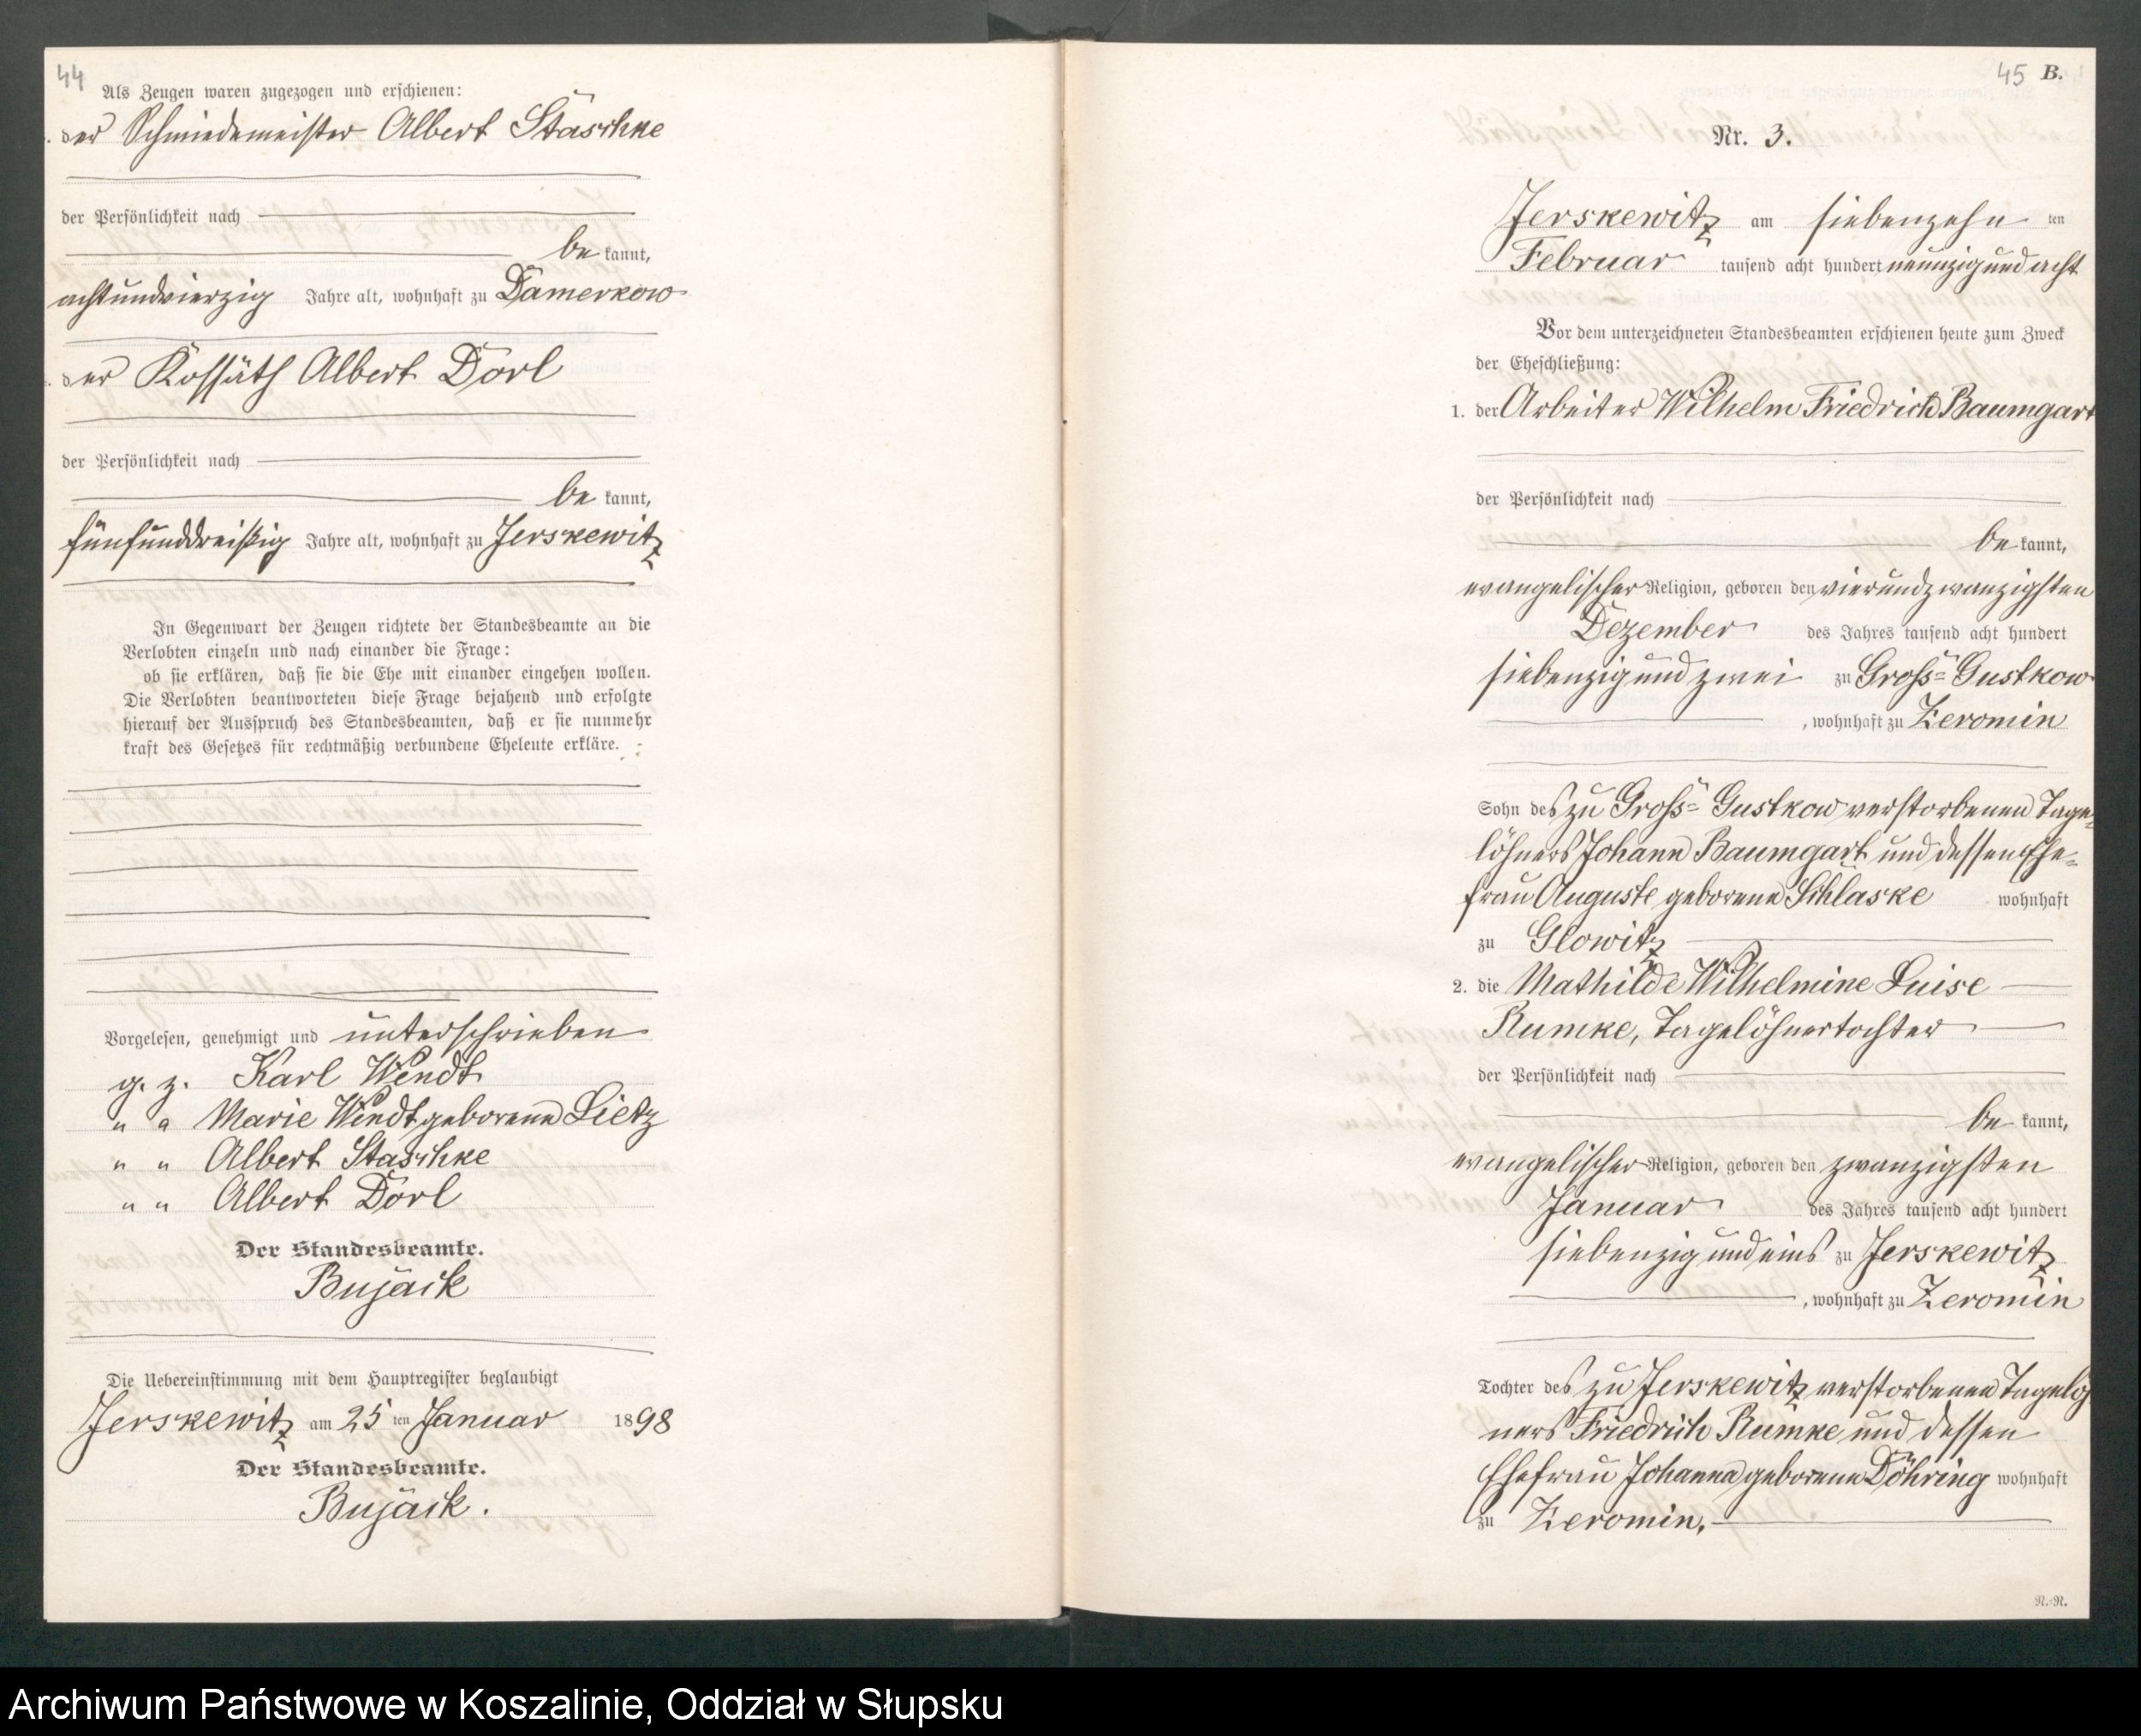 44
Als Zeugen waren zugezogen und erschienen:
der Schmiedemeister Albert Staschke
der Persönlichkeit nach
bekannt,
achtundvierzig Jahre alt, wohnhaft zu Damerkow
der Kossäth Albert Dorl
der Persönlichkeit nach
bekannt,
fünfunddreißig Jahre alt, wohnhaft zu Jerskewitz
In Gegenwart der Zeugen richtete der Standesbeamte an die
Verlobten einzeln und nach einander die Frage:
ob sie erklären, daß sie die Ehe mit einander eingehen wollen.
Die Verlobten beantworteten diese Frage bejahend und erfolgte
hierauf der Ausspruch des Standesbeamten, daß er sie nunmehr
kraft des Gesetzes für rechtmäßig verbundene Eheleute erkläre.
Vorgelesen, genehmigt und unterschrieben
g. z. Karl Wendt
" " Marie Wendt geborene Lietz
" " Albert Staschke
" " Albert Dorl
Der Standesbeamte.
Bujack
Die Uebereinstimmung mit dem Hauptregister beglaubigt
Jerskewitz am 25 ten Januar 1898
Der Standesbeamte.
Bujack.
45 B.
Nr. 3.
Jerskewitz am siebenzehn ten
Februar tausend acht hundert neunzig und acht
Vor dem unterzeichneten Standesbeamten erschienen heute zum Zweck
der Eheschließung:
1. der Arbeiter Wilhelm Friedrich Baumgart
der Persönlichkeit nach
bekannt,
evangelischer Religion, geboren den vierundzwanzigsten
Dezember des Jahres tausend acht hundert
siebenzig und zwei zu Gross=Gustkow
, wohnhaft zu Zeromin
Sohn des zu Gross=Gustkow verstorbenen Tage=
löhners Johann Baumgart und dessen Ehe=
frau Auguste geborene Schlaske wohnhaft
zu Glowitz
2. die Mathilde Wilhelmine Luise
Rumke, Tagelöhnertochter
der Persönlichkeit nach
bekannt,
evangelischer Religion, geboren den zwanzigsten
Januar des Jahres tausend acht hundert
siebenzig und eins zu Jerskewitz
, wohnhaft zu Zeromin
Tochter des zu Jerskewitz verstorbenen Tagelöh
ners Friedrich Rumke und dessen
Ehefrau Johanna geborene Döhring wohnhaft
zu Zeromin.
R.-R.
Archiwum Państwowe w Koszalinie, Oddział w Słupsku